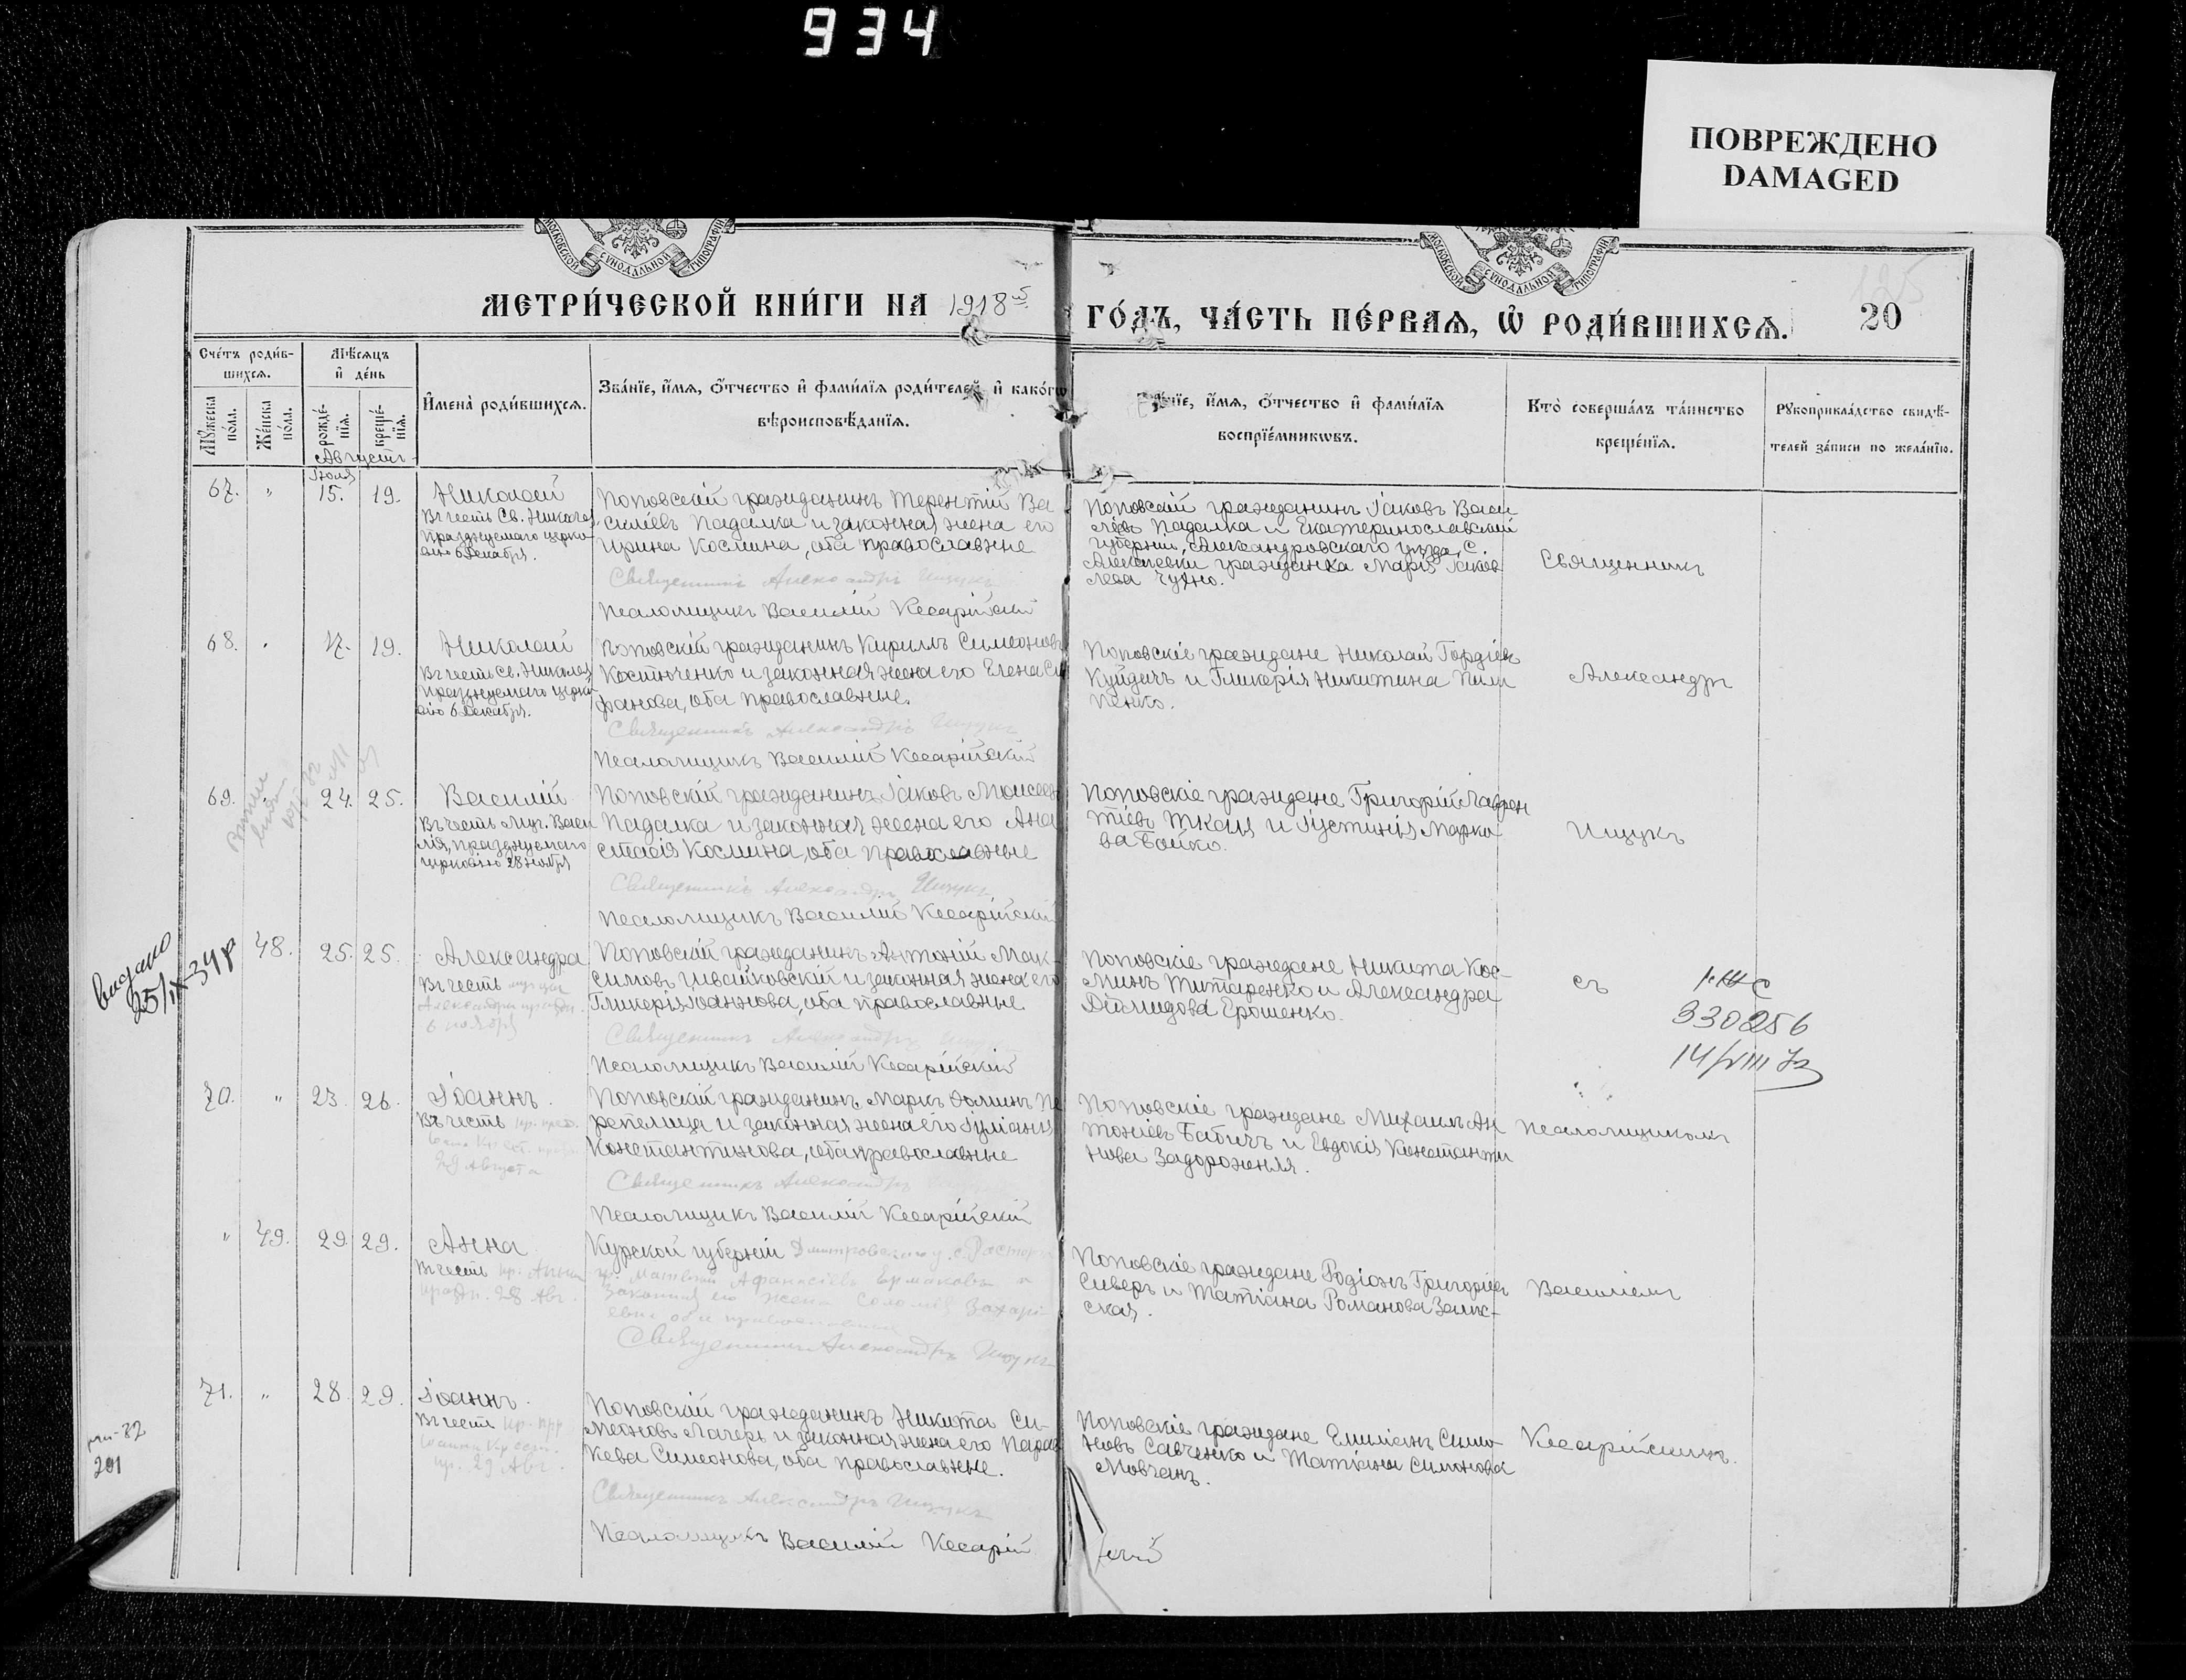 934
ПОВРЕЖДЕНО
DAMAGED
МОСКОВСКОЙ СѴНОДАЛЬНОЙ ТИПОГРАФІИ
МОСКОВСКОЙ СѴНОДАЛЬНОЙ ТИПОГРАФІИ
МЕТРИ́ЧЕСКОЙ КНИ́ГИ НА 1918й
ГО́ДЪ, ЧА́СТЬ ПЕ́РВАѦ, Ѡ РОДИ́ВШИХСѦ.
125
20
Сче́тъ роди́в-
шихсѧ.
Мѣ́сѧцъ
и҆ де́нь
Мꙋ́жеска
по́ла.
Же́нска
по́ла.
рожде́-
нїѧ.
креще́-
нїѧ.
И҆мена̀ роди́вшихсѧ.
Зва́нїе, и҆́мѧ, ѻ҆́тчество и҆ фами́лїѧ роди́телей и҆ како́гѡ
вѣроисповѣ́данїѧ.
и҆́мѧ, ѻ҆́тчество и҆ фами́лїѧ
воспрїе́мникѡвъ.
Кто̀ соверша́лъ та́инство
креще́нїѧ.
Рꙋкоприкла́дство свидѣ́-
телей за́писи по жела́нїю.
Августъ
Іюля
67. " 15. 19. Николай
Въ честь Св. Николая
празднуемаго церко-
вію 6 Декабря.
Поповскій гражданинъ Терентій Ва
силіевъ Падалка и законная жена его
Ирина Космина, оба православные
Священникъ Александръ Ищукъ
Псаломщикъ Василій Кесарійскій
Поповскій гражданинъ Іаковъ Васи
ліевъ Падалка и Екатеринославской
губерніи, Александровскаго уѣзда, с.
гражданка Марія Іаков
лева Чуйно.
Священникъ
68. " 17. 19. Николай
Въ честь Св. Николая
празднуемаго церко
вію 6 Декабря.
Поповскій гражданинъ Кириллъ Симеоновъ
Костюченко и законная жена его Елена Сте
фанова, оба православные.
Священникъ Александръ Ищукъ
Псаломщикъ Василій Кесарійскій
Поповскіе граждане Николай Гордіевъ
Куйдичъ и Гликерія Никитина Пили
пенко.
Александръ
69. " 24. 25. Василій
Въ честь Муч. Васи
лія, празднуемаго
церковію 28 Ноября
Поповскій гражданинъ Іаковъ Моисеевъ
Падалка и законная жена его Ана
стасія Космина, оба православные
Священникъ Александръ Ищукъ
Псаломщикъ Василій Кесарійскій
Поповскіе граждане Григорій Лаврен
тіевъ Ткачъ и Іустинія Марко
ва Бойко.
Ищукъ
видано
25/IX 34 р
48. 25. 25. Александра
Въ честь мучен.
Александры праздн.
6 ноября
Поповскій гражданинъ Антоній Мак-
симовъ Ивайковскій и законная жена его
Гликерія Іоаннова, оба православные
Священникъ Александръ Ищукъ
Псаломщикъ Василій Кесарійскій
Поповскіе граждане Никита Кос-
минъ Титаренко и Александра
Діамидова Ерошенко.
съ
330256
14/VIII 73
70. " 23. 26. Іоаннъ.
Въ честь пр. пред.
29 Августа
Поповскій гражданинъ Маркъ Фоминъ Пе
репелица и законная жена его Іуліанія
Константинова, оба православные
Священникъ Александръ
Псаломщикъ Василій Кесарійскій
Поповскіе граждане Михаилъ Ан
тоніевъ Бабичъ и Евдокія Константи
нова Задорожняя.
Псаломщикомъ
" 49. 29. 29. Анна
Въ честь пр. Анны
праздн. 28 Авг.
Курской губерніи Дмитровскаго у. с.
гр. Матвей Афанасіевъ Ермаковъ и
законная его жена Соломія Захарі
евна оба православные
Священникъ Александръ Ищукъ
Поповскіе граждане Родіонъ Григоріевъ
Сиверъ и Татіана Романова Заик-
ская.
Василіемъ
71. " 28. 29. Іоаннъ.
Въ честь пр. прр
Іоанна Крест.
пр. 29 Авг.
Поповскій гражданинъ Никита Си-
меоновъ Лагерь и законная жена его Парас
кева Симеонова, оба православные.
Священникъ Александръ Ищукъ
Псаломщикъ Василій Кесарій
скій
Поповскіе граждане Емиліанъ Симо-
новъ Савченко и Татіана Симонова
Мовчанъ.
Кесарійскимъ.
201